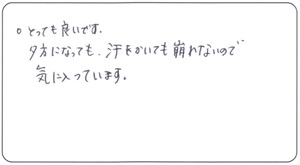 ○とっても良いです。
夕方になっても、汗をかいても崩れないので
気に入っています。